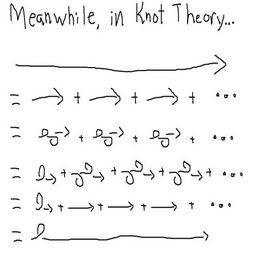 Meanwhile, in Knot Theory...
= + + + ...
= + + + ...
= + + + + ...
= + + + + ...
=